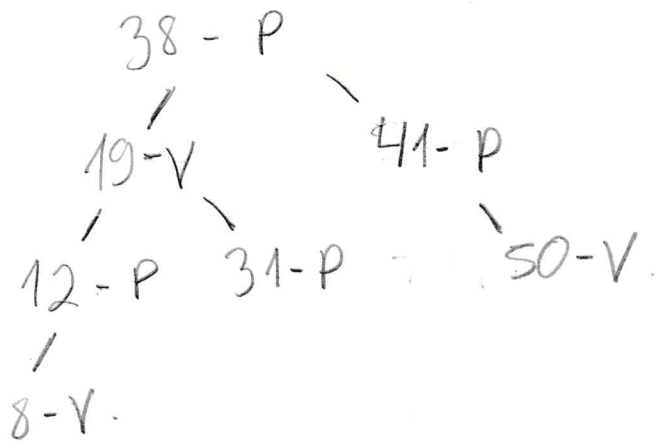 38 - P
19-V 41- P
12-P 31-P 50-V.
8-V.